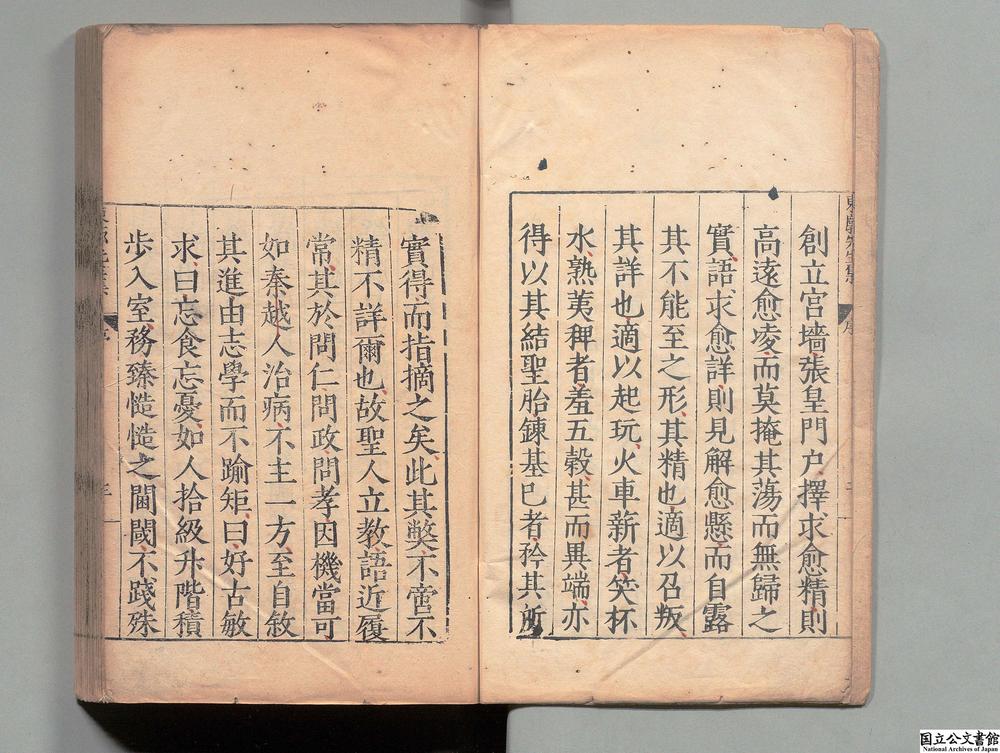 創立宮墻張皇門户擇求愈精則
高遠愈凌而莫掩其蕩而無歸之
實語求愈詳則見解愈懸而自露
其不能至之形其精也適以召叛
其詳也適以起玩火車薪者笑杯
水熟荑稗者羞五穀甚而異端亦
得以其結聖胎鍊基已者矜其所
實得而指摘之矣此其獘不啻不
精不詳爾也故聖人立教語近履
常其於問仁問政問孝因機當可
如秦越人治病不主一方至自敘
其進由志學而不踰矩曰好古敏
求曰忘食忘憂如人拾級升階積
步入室務臻慥慥之閫閾不踐殊
序
国立公文書館
National Archives of Japan